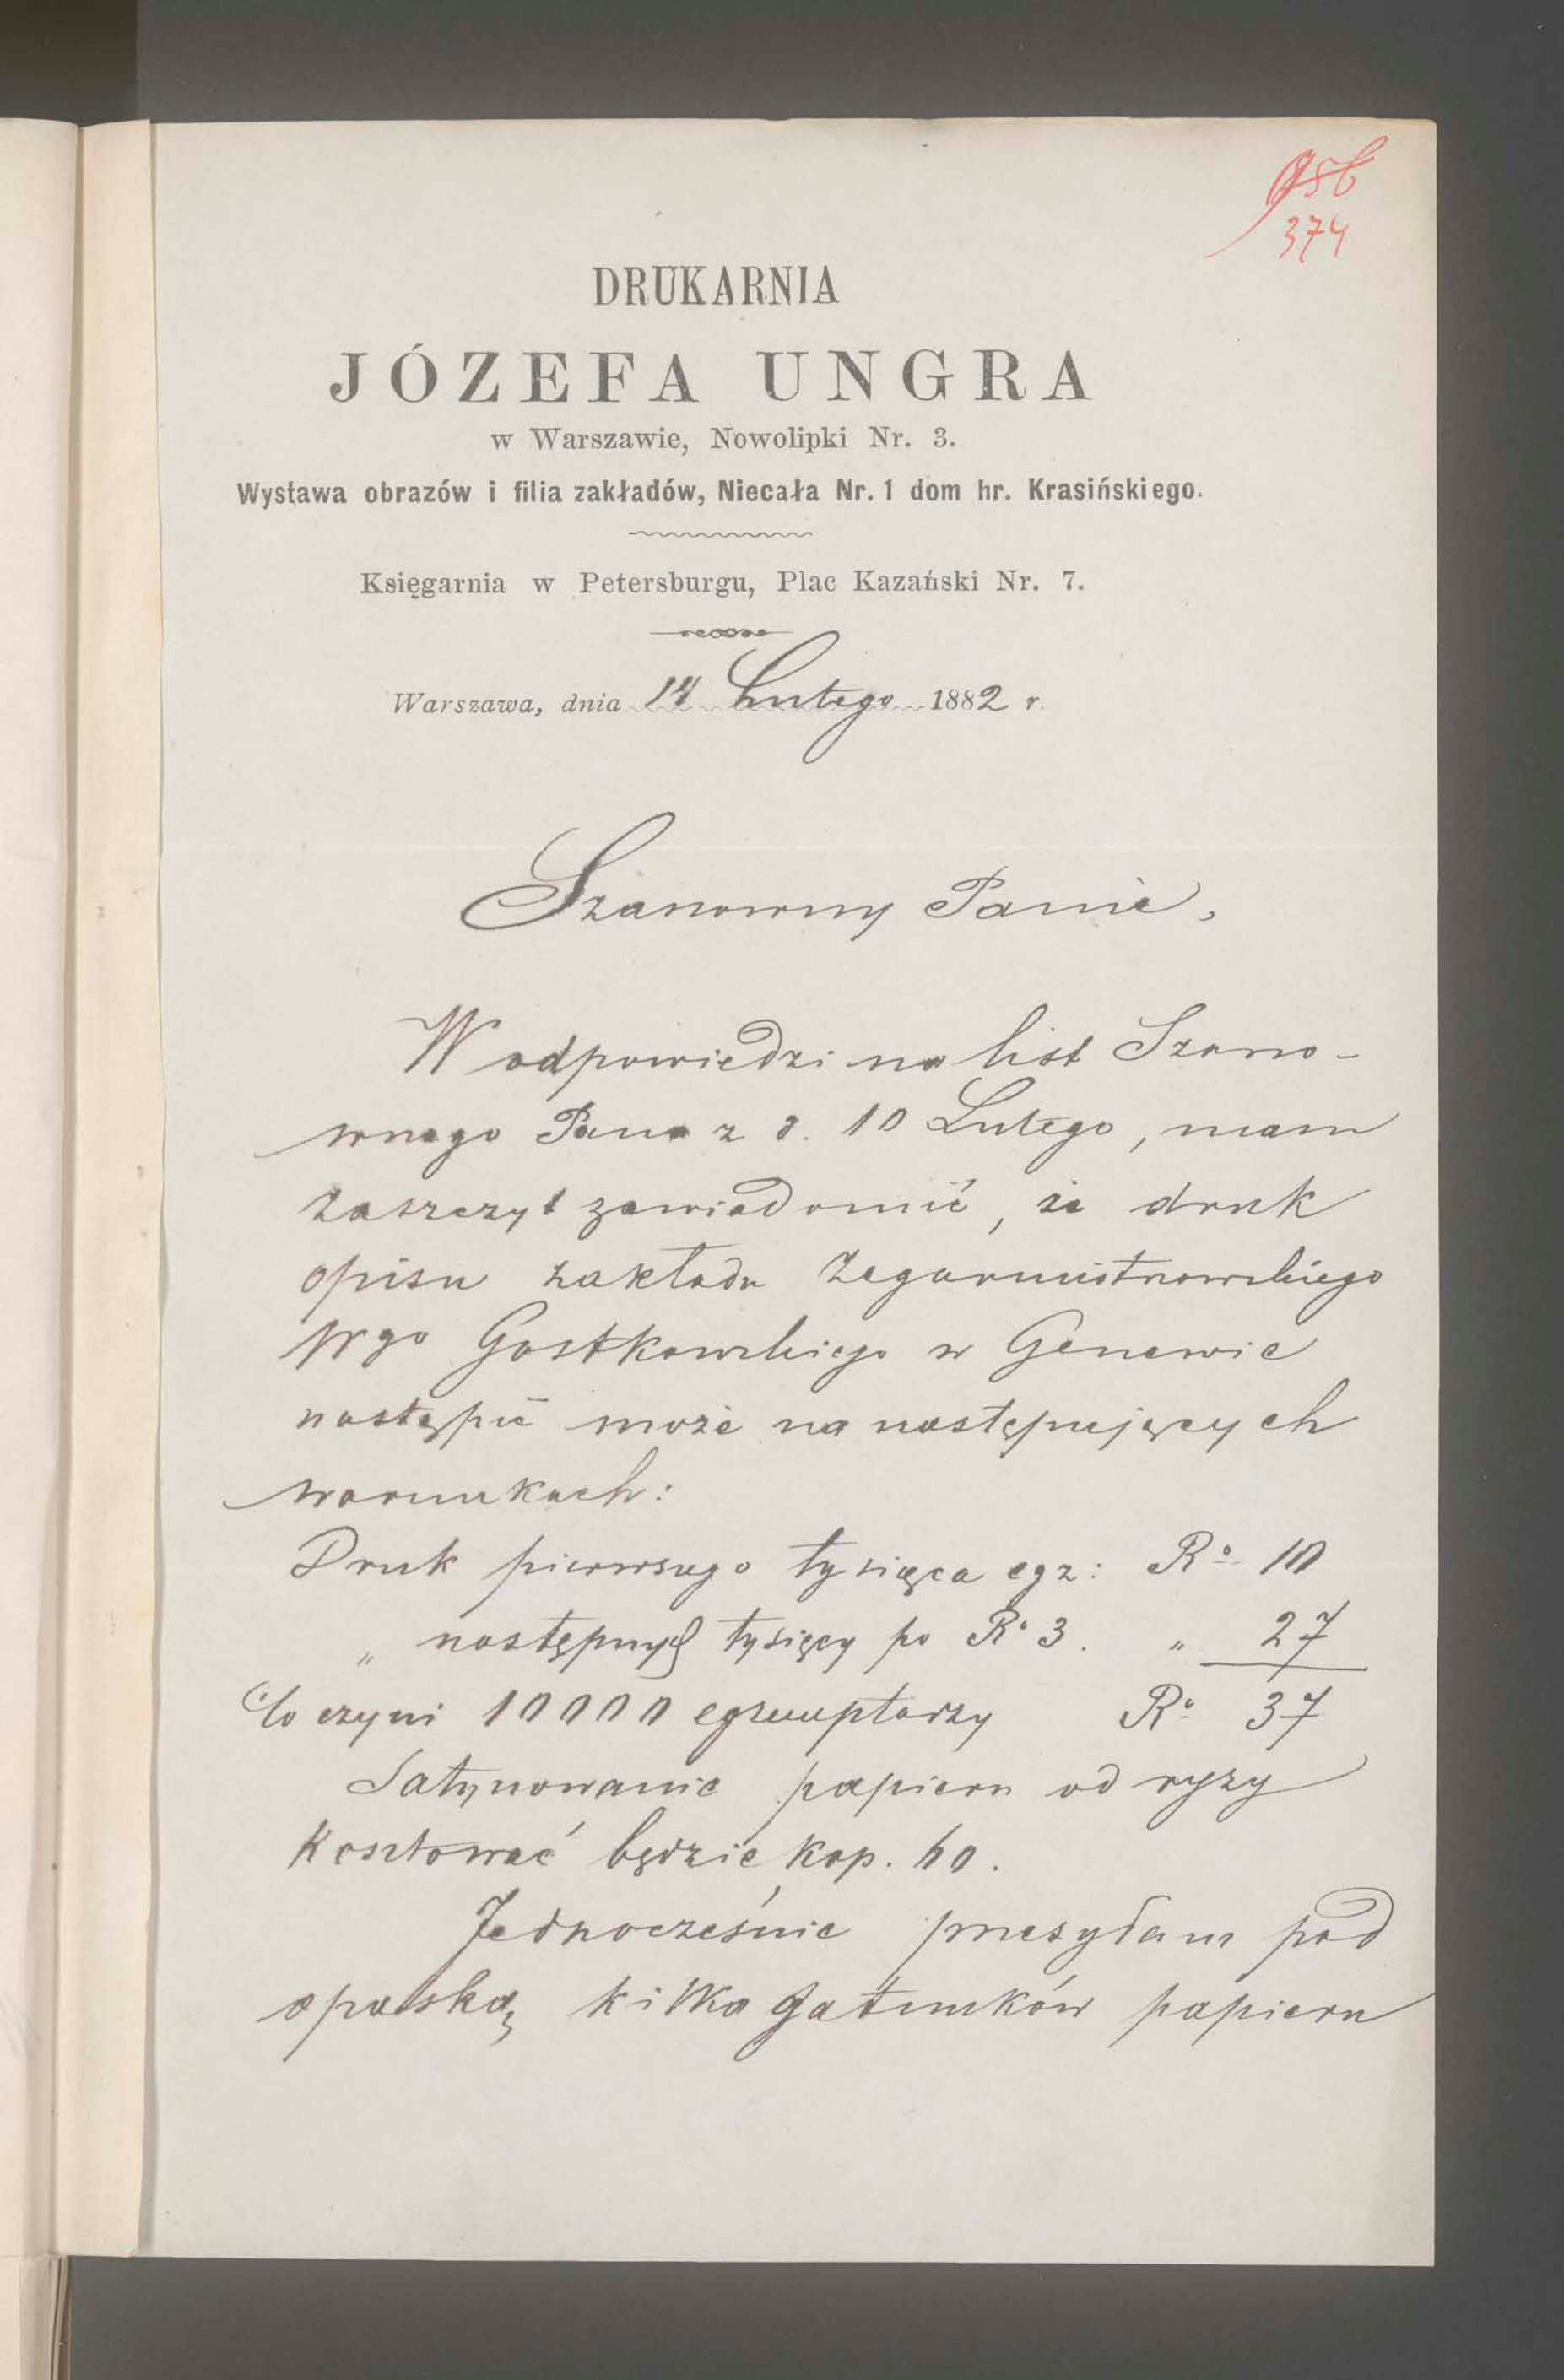 374
DRUKARNIA
JÓZEFA UNGRA
w Warszawie, Nowolipki Nr. 3.
Wystawa obrazów i filia zakładów, Niecała Nr. 1 dom hr. Krasińskiego.
Księgarnia w Petersburgu, Plac Kazański Nr. 7.
Warszawa, dnia 14 Lutego 1882 r.
Szanowny Panie,
W odpowiedzi na list Szano-
wnego Pana z d. 10 Lutego, mam
zaszczyt zawiadomić, że druk
opisu zakładu Zegarmistrzowskiego
Wgo Gostkowskiego w Genewie
nastąpić może na następujących
warunkach:
Druk pierwszego tysiąca egz: Rº 10
„ następnych tysięcy po Rº 3. „ 27
Co czyni 10000 egzemplarzy Rº 37
Satynowanie papieru od ryzy
kosztować będzie kop. 60.
Jednocześnie przesyłam pod
opaską kilka gatunków papieru